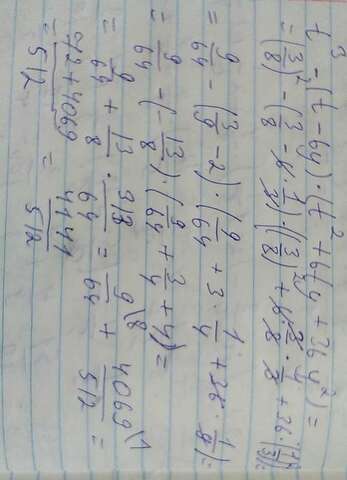 t³ - (t - 6y) · (t² + 6ty + 36y²) =
= (3/8)² - (3/8 - 6 · 1/3) · ((3/8)² + 6 · 3/8 · 1/3 + 36 · (1/3)²) =
= 9/64 - (3/8 - 2) · (9/64 + 3 · 1/4 + 36 · 1/9) =
= 9/64 - (- 13/8) · (9/64 + 3/4 + 4) =
= 9/64 + 13/8 · 313/64 = 9\8/64 + 4069\1/512 =
= 72 + 4069/512 = 4141/512